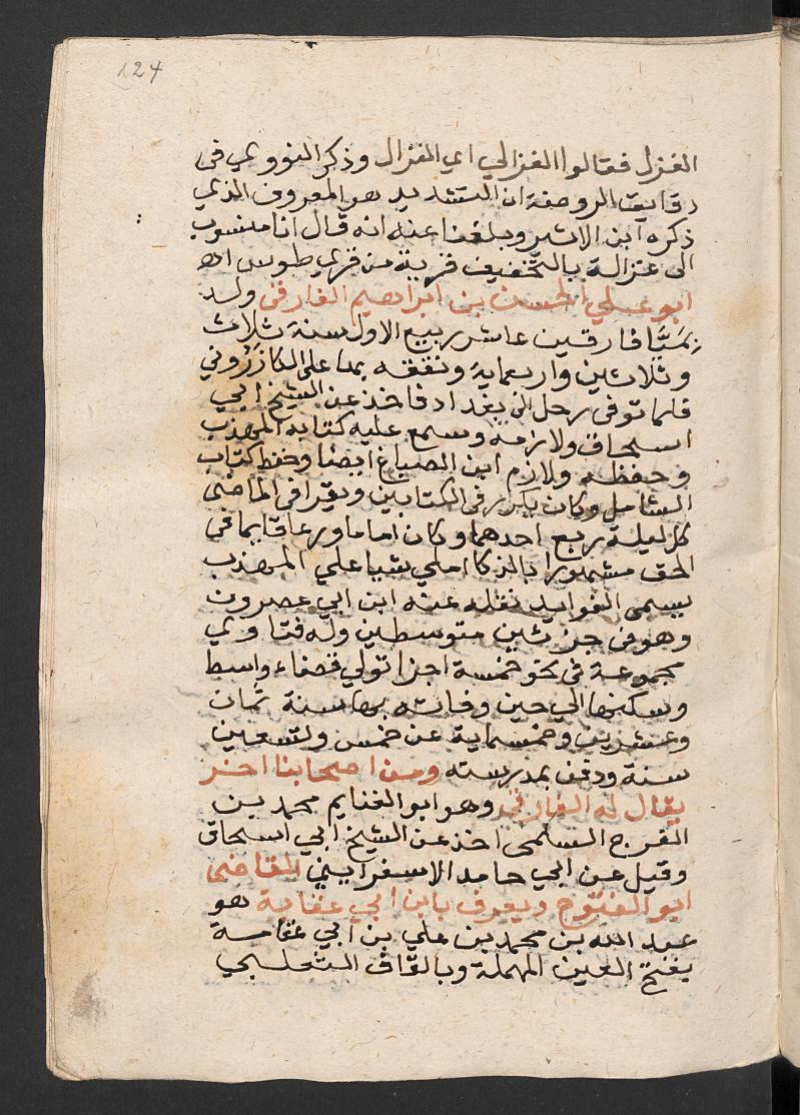 124
الغزل فقالوا الغزالي اي الغزال وذكر النووي في
دقايق الروضة ان التشديد هو المعروف الذي
ذكره ابن الاثير وبلغنا عنه انه قال انا منسوب
الى غزالة بالتخفيف قرية من قري طوس اهـ
ابو علي الحسن بن ابراهيم الفارقى ولد
بميَّافارقين عاشر ربيع الاول سنة ثلاث
وثلاثين واربعماية وتفقه بها على الكازَرُوني
فلما توفى رحل الى بغداد فاخذ عن الشيخ ابي
اسحاق ولازمه وسمع عليه كتابه المهذب
وحفظه ولازم ابن الصباغ ايضا وحفظ كتاب
الشامل وكان يكرر فى الكتابين ويقرا في الماضى
كل ليلة ربع احدهما وكان اماما ورعا قايما في
الحق مشهورا بالذكا املي شيا علي المهذب
يسمى الفوايد نقله عنه ابن ابي عصرون
وهو في جزئين متوسطين وله فتاوي
مجموعة في نحو خمسة اجزا تولي قضاء واسط
وسكنها الي حين وفاته بها سنة ثمان
وعشرين وخمسماية عن خمس وتسعين
سنة ودفن بمدرسته ومن اصحابنا اخر
يقال له الفارقي وهو ابو الغنايم محمد بن
الفرج السلمى اخذ عن الشيخ ابي اسحاق
وقيل عن ابي حامد الاسفرايني القاضى
ابو الفتوح ويعرف بابن ابي عقامة هو
عبد الله بن محمد بن علي بن ابي عقامة
بفتح العين المهملة وبالقاف التغلبي